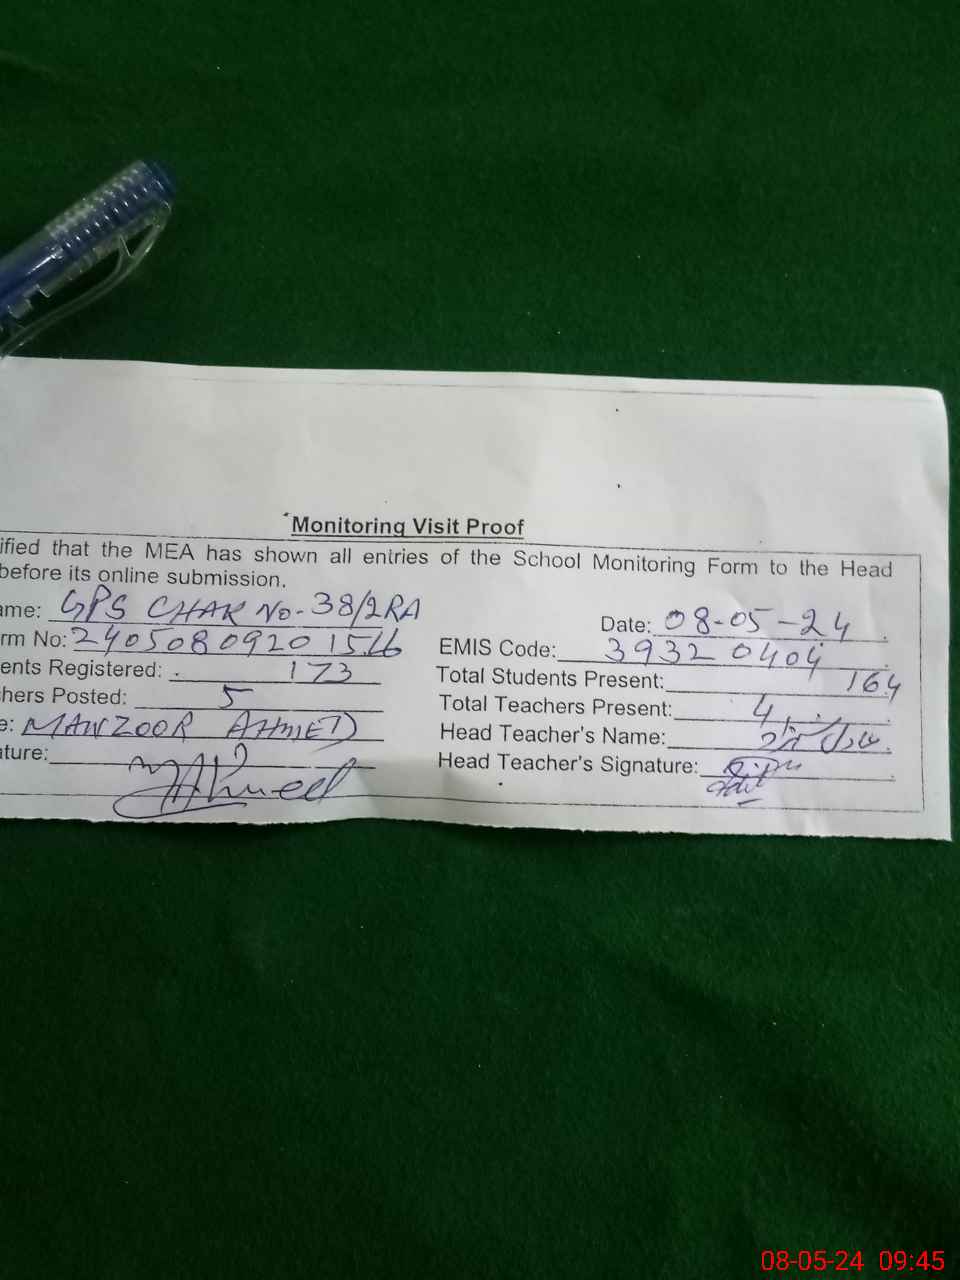 Monitoring Visit Proof
ified that the MEA has shown all entries of the School Monitoring Form to the Head
before its online submission.
ame: GPS CHAK No. 38/2RA
Date: 08-05-24
rm No: 2405080920 1546
EMIS Code: 39320404
ents Registered: 173
Total Students Present: 164
hers Posted: 5
Total Teachers Present: 4
e: MANZOOR AHMED
Head Teacher's Name:
ature: MAhmed
Head Teacher's Signature:
08-05-24 09:45